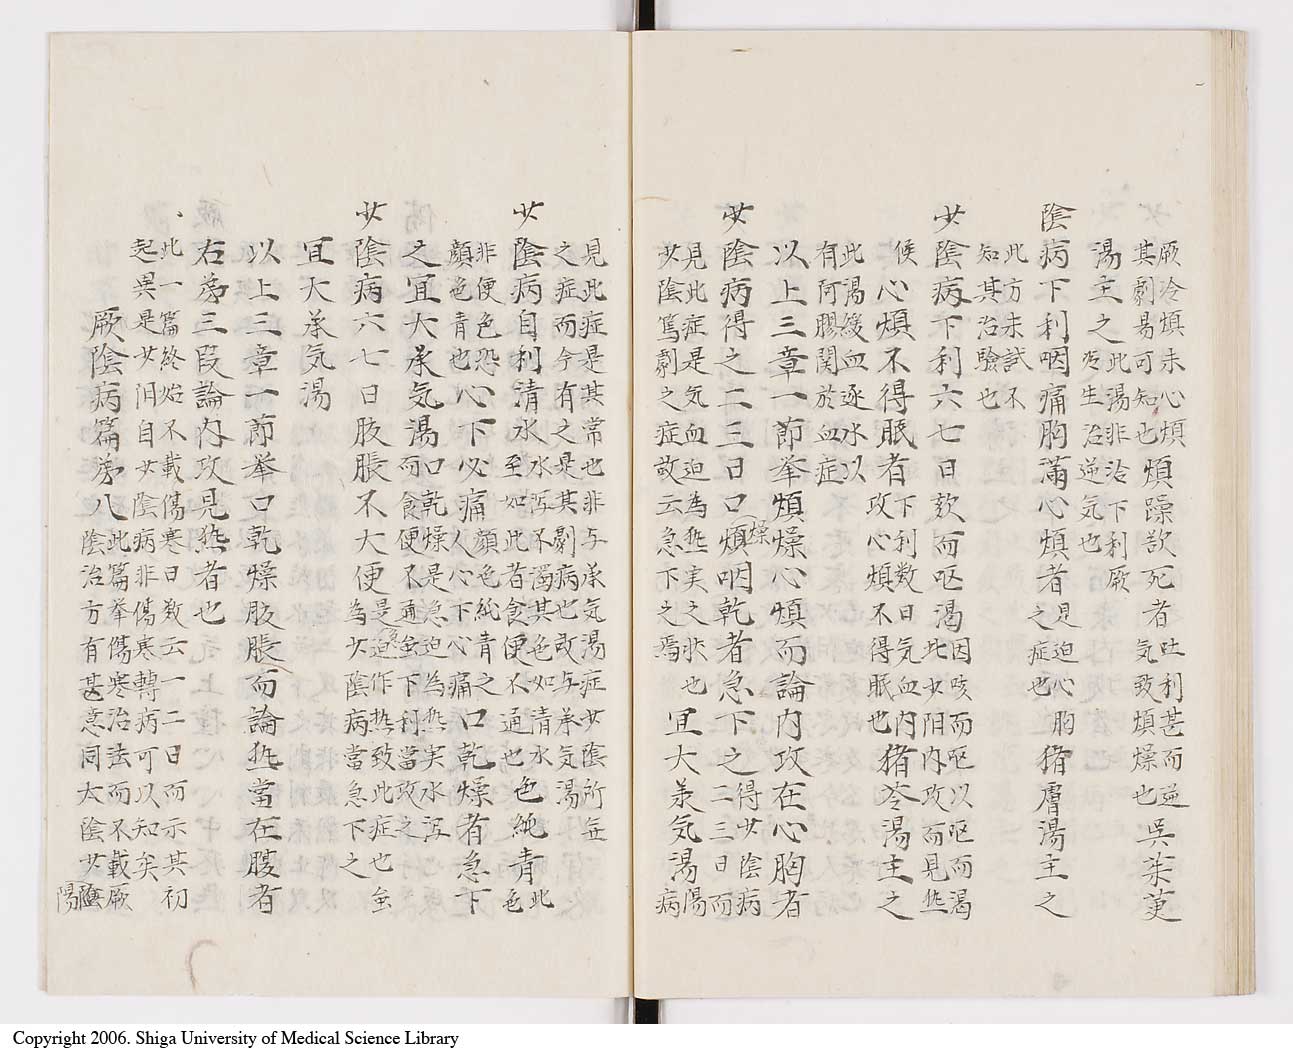 厥冷煩未心煩
其劇易可知也
煩躁欲死者
吐利甚而逆
気致煩燥也
呉茱萸
湯主之
此湯非治下利厥
冷生治逆気也
陰病下利咽痛胸滿心煩者
是迫心胸
之症也
猪膚湯主之
此方未試不
知其治驗也
少陰病下利六七日欬而呕渴
因咳而呕以呕而渇
此少阳内攻而見热
候
心煩不得眠者
下利数日気血内
攻心煩不得眠也
猪苓湯主之
此湯緩血逐水以
有阿膠関於血症
以上三章一節挙煩燥心煩而論内攻在心胸者
少陰病得之二三日口燥煩咽乾者急下之
得少陰病
二三日而
見此症是気血迫為热実之状也
少陰篤劇之症故云急下之焉
宜大承気湯
陽
病
見此症是其常也非与承気湯症少陰所無
之症而今有之是其劇病也故与承気湯
少陰病自利清水
水泻不濁其色如清水
至如此者食便不通也
色純青
此
色
非便色恐
顔色青也
心下必痛
顔色純青之
人心下心痛
口乾燥者急下
之宜大承気湯
口乾燥是急迫為热実水泻
而食便不通虽下利當攻之
少陰病六七日腹脹不大便
是急迫作热致此症也虽
為少陰病當急下之
宜大承気湯
以上三章一節挙口乾燥腹脹而論热當在腹者
右第三段論内攻見热者也
此一篇終始不載傷寒日数云一二日而示其初
起異是少阴自少陰病非傷寒轉病可以知矣
厥陰病篇第八
此篇挙傷寒治法而不載厥
陰治方有甚意同大陰少陰
陽
Copyright 2006. Shiga University of Medical Science Library